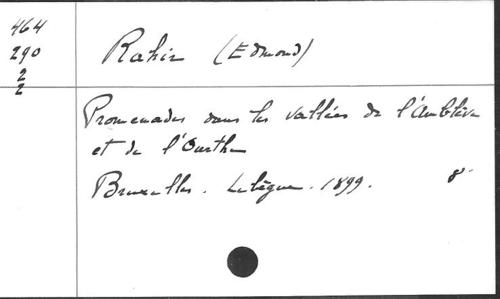 464
290
2
2
Rahir (Edmond)
Promenades dans les vallées de l'Amblève
et de l'Ourthe
Bruxelles. Lebègue. 1899. 8°